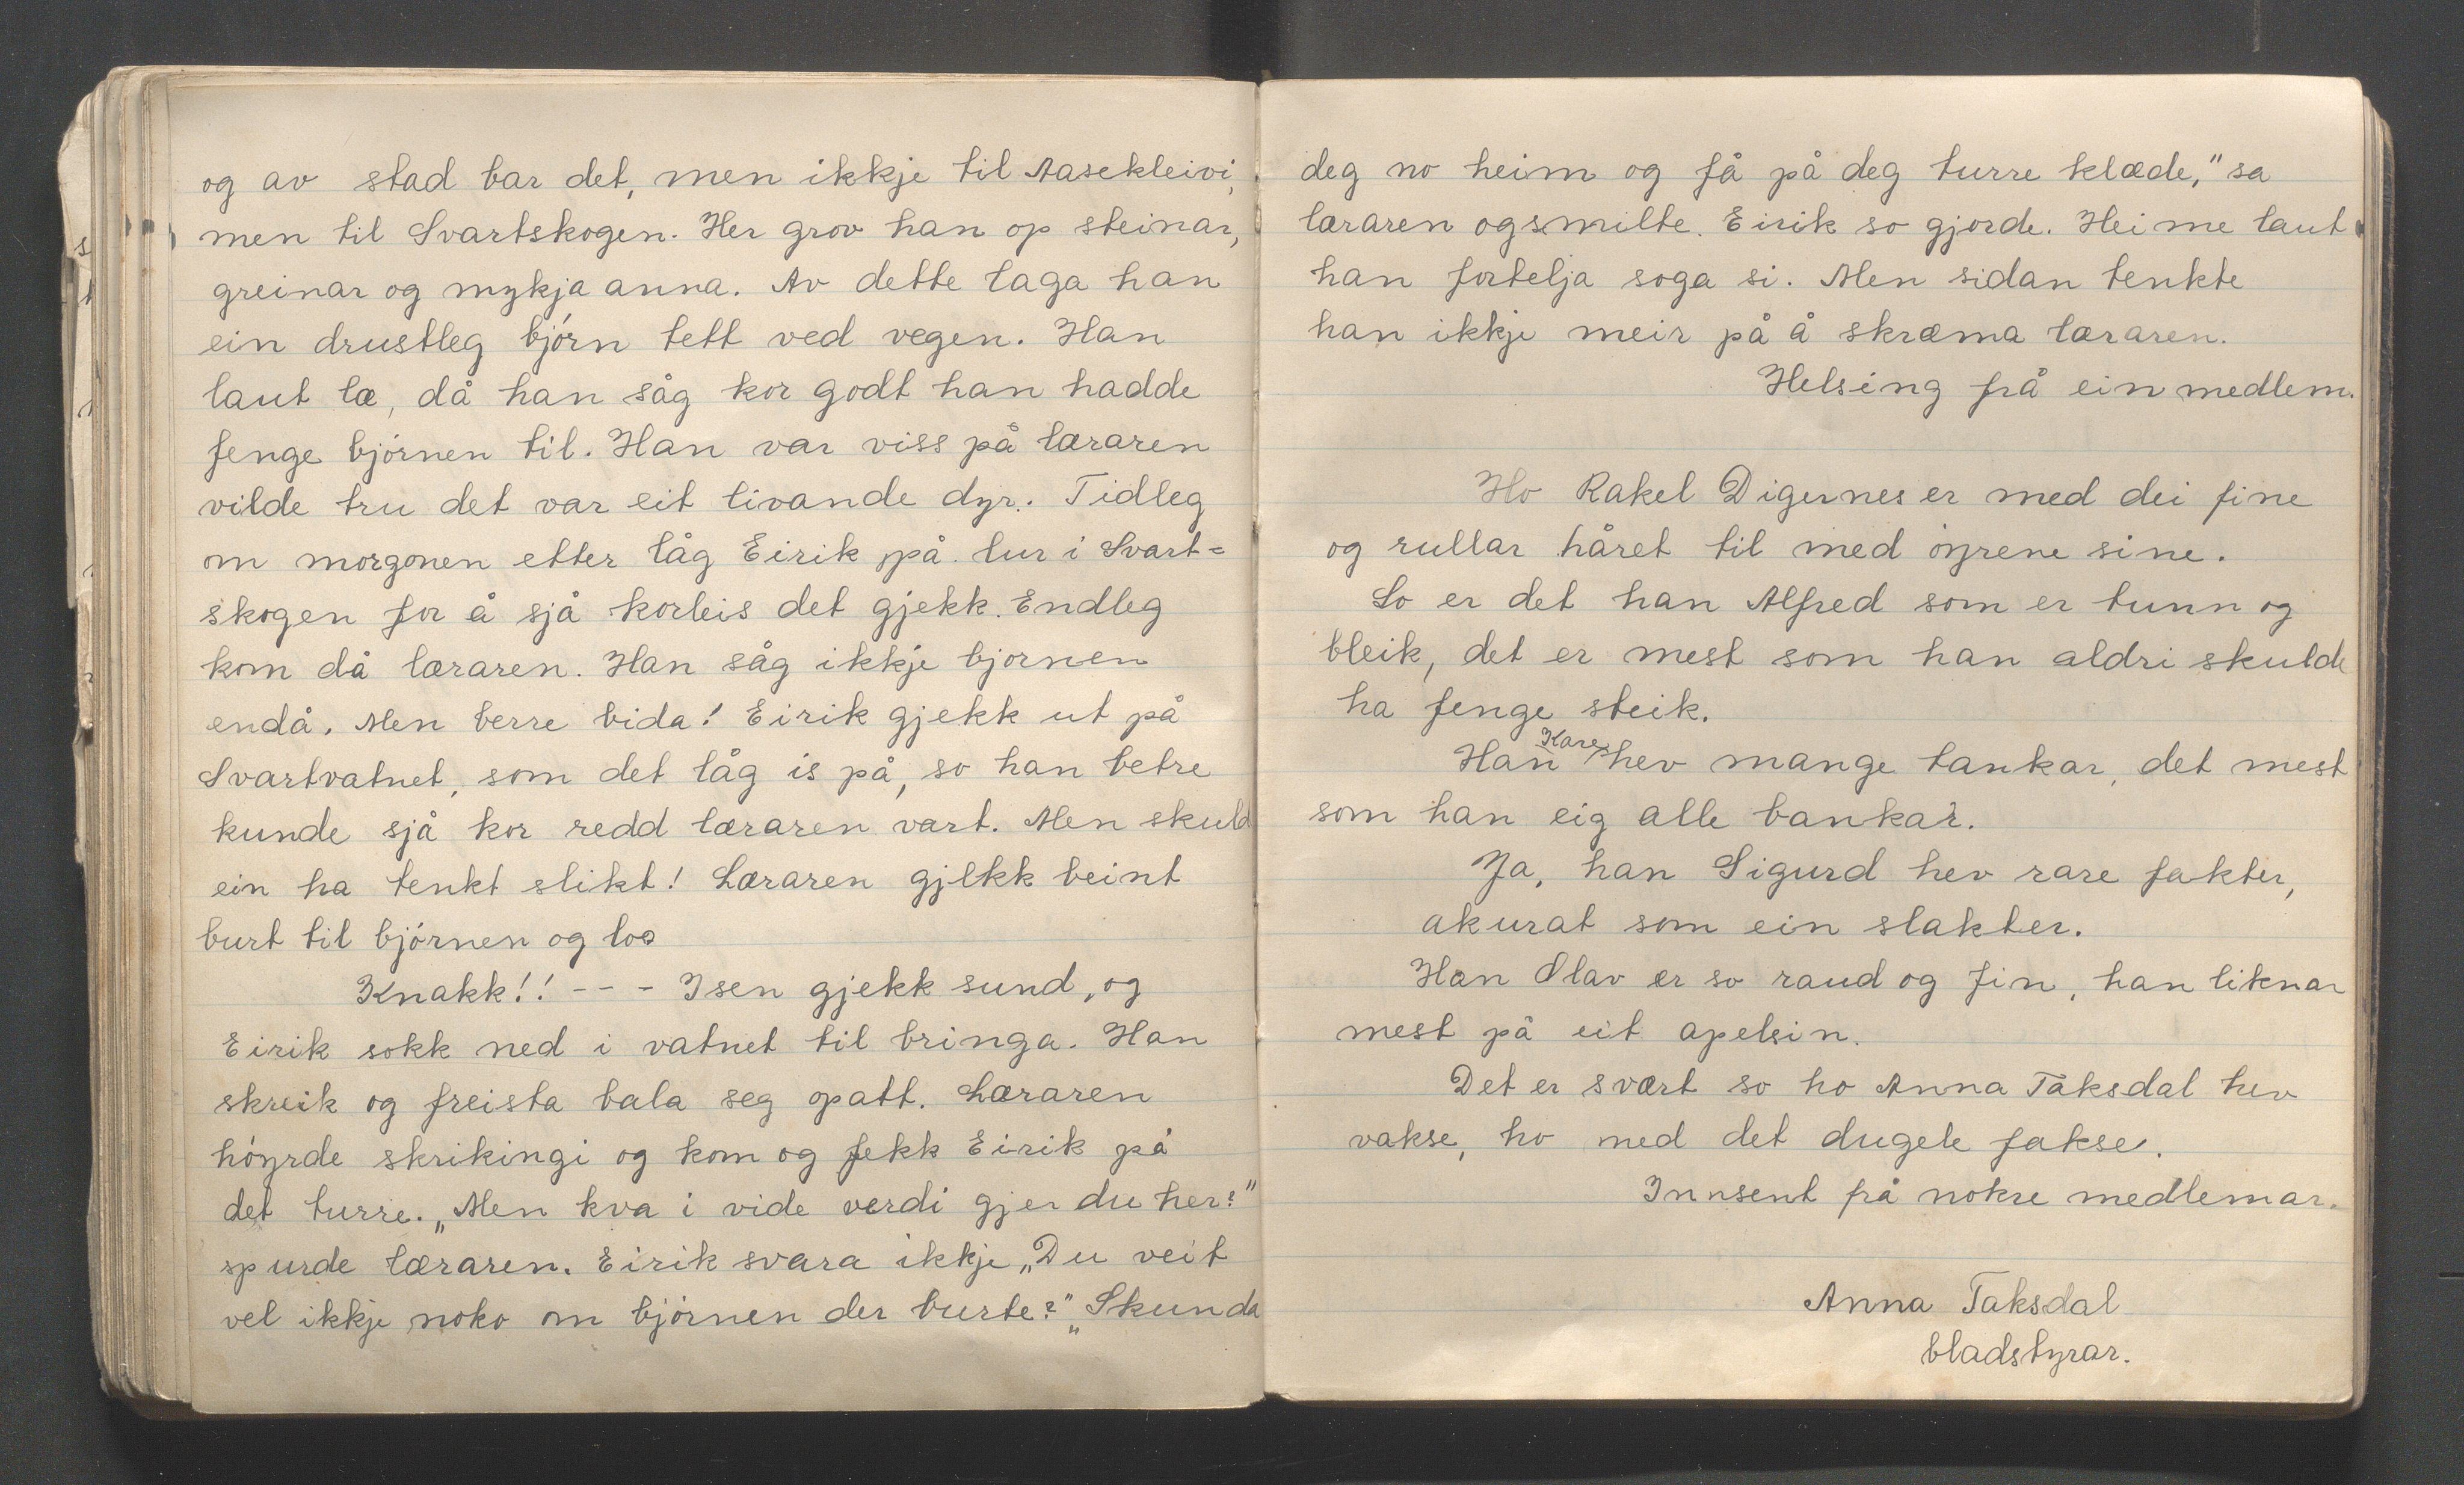 og av stad bar det, men ikkje til Aasekleivi,
men til Svartskogen. Her grov han op steinar,
greinar og mykja anna. Av dette laga han
ein drustleg bjórn tett ved vegen. Han
laut læ, då han såg kor godt han hadde
fenge bjórnen til. Han var viss på læraren
vilde tru det var eit livande dyr. Tidleg
om morgonen etter låg Eirik på lur i Svart=
skogen for å sjå korleis det gjekk. Endleg
kom då læraren. Han såg ikkje bjornen
endå. Men berre bida! Eirik gjekk ut på
Svartvatnet, som det låg is på, so han betre
kunde sjå kor redd læraren vart. Men skuld
ein ha tenkt slikt! Læraren gjekk beint
burt til bjórnen og lo
Knakk!! - - - Isen gjekk sund, og
Eirik sokk ned i vatnet til bringa. Han
skreik og freista bala seg opatt. Læraren
hóyrde skrikingi og kom og fekk Eirik på
det turre. „Men kva i vide verdi gjer du her?"
spurde læraren. Eirik svara ikkje „Du veit
vel ikkje noko om bjórnen der burte?" „Skunda
deg no heim og få på deg turre klæde," sa
læraren og smilte. Eirik so gjorde. Heime laut
han fortelja soga si. Men sidan tenkte
han ikkje meir på å skræma læraren.
Helsing frå ein medlem.
Ho Rakel Digernes er med dei fine
og rullar håret til med óyrene sine.
So er det han Alfred som er tunn og
bleik, det er mest som han aldri skulde
ha fenge steik.
Han Kare hev mange tankar, det mest
som han eig alle bankar.
Ja, han Sigurd hev rare fakter,
akurat som ein slakter.
Han Olav er so raud og fin, han liknar
mest på eit apelsin.
Det er svært so ho Anna Taksdal hev
vakse, ho med det dugele fakse.
Innsent frå nokre medlemar.
Anna Taksdal
bladstyrar.